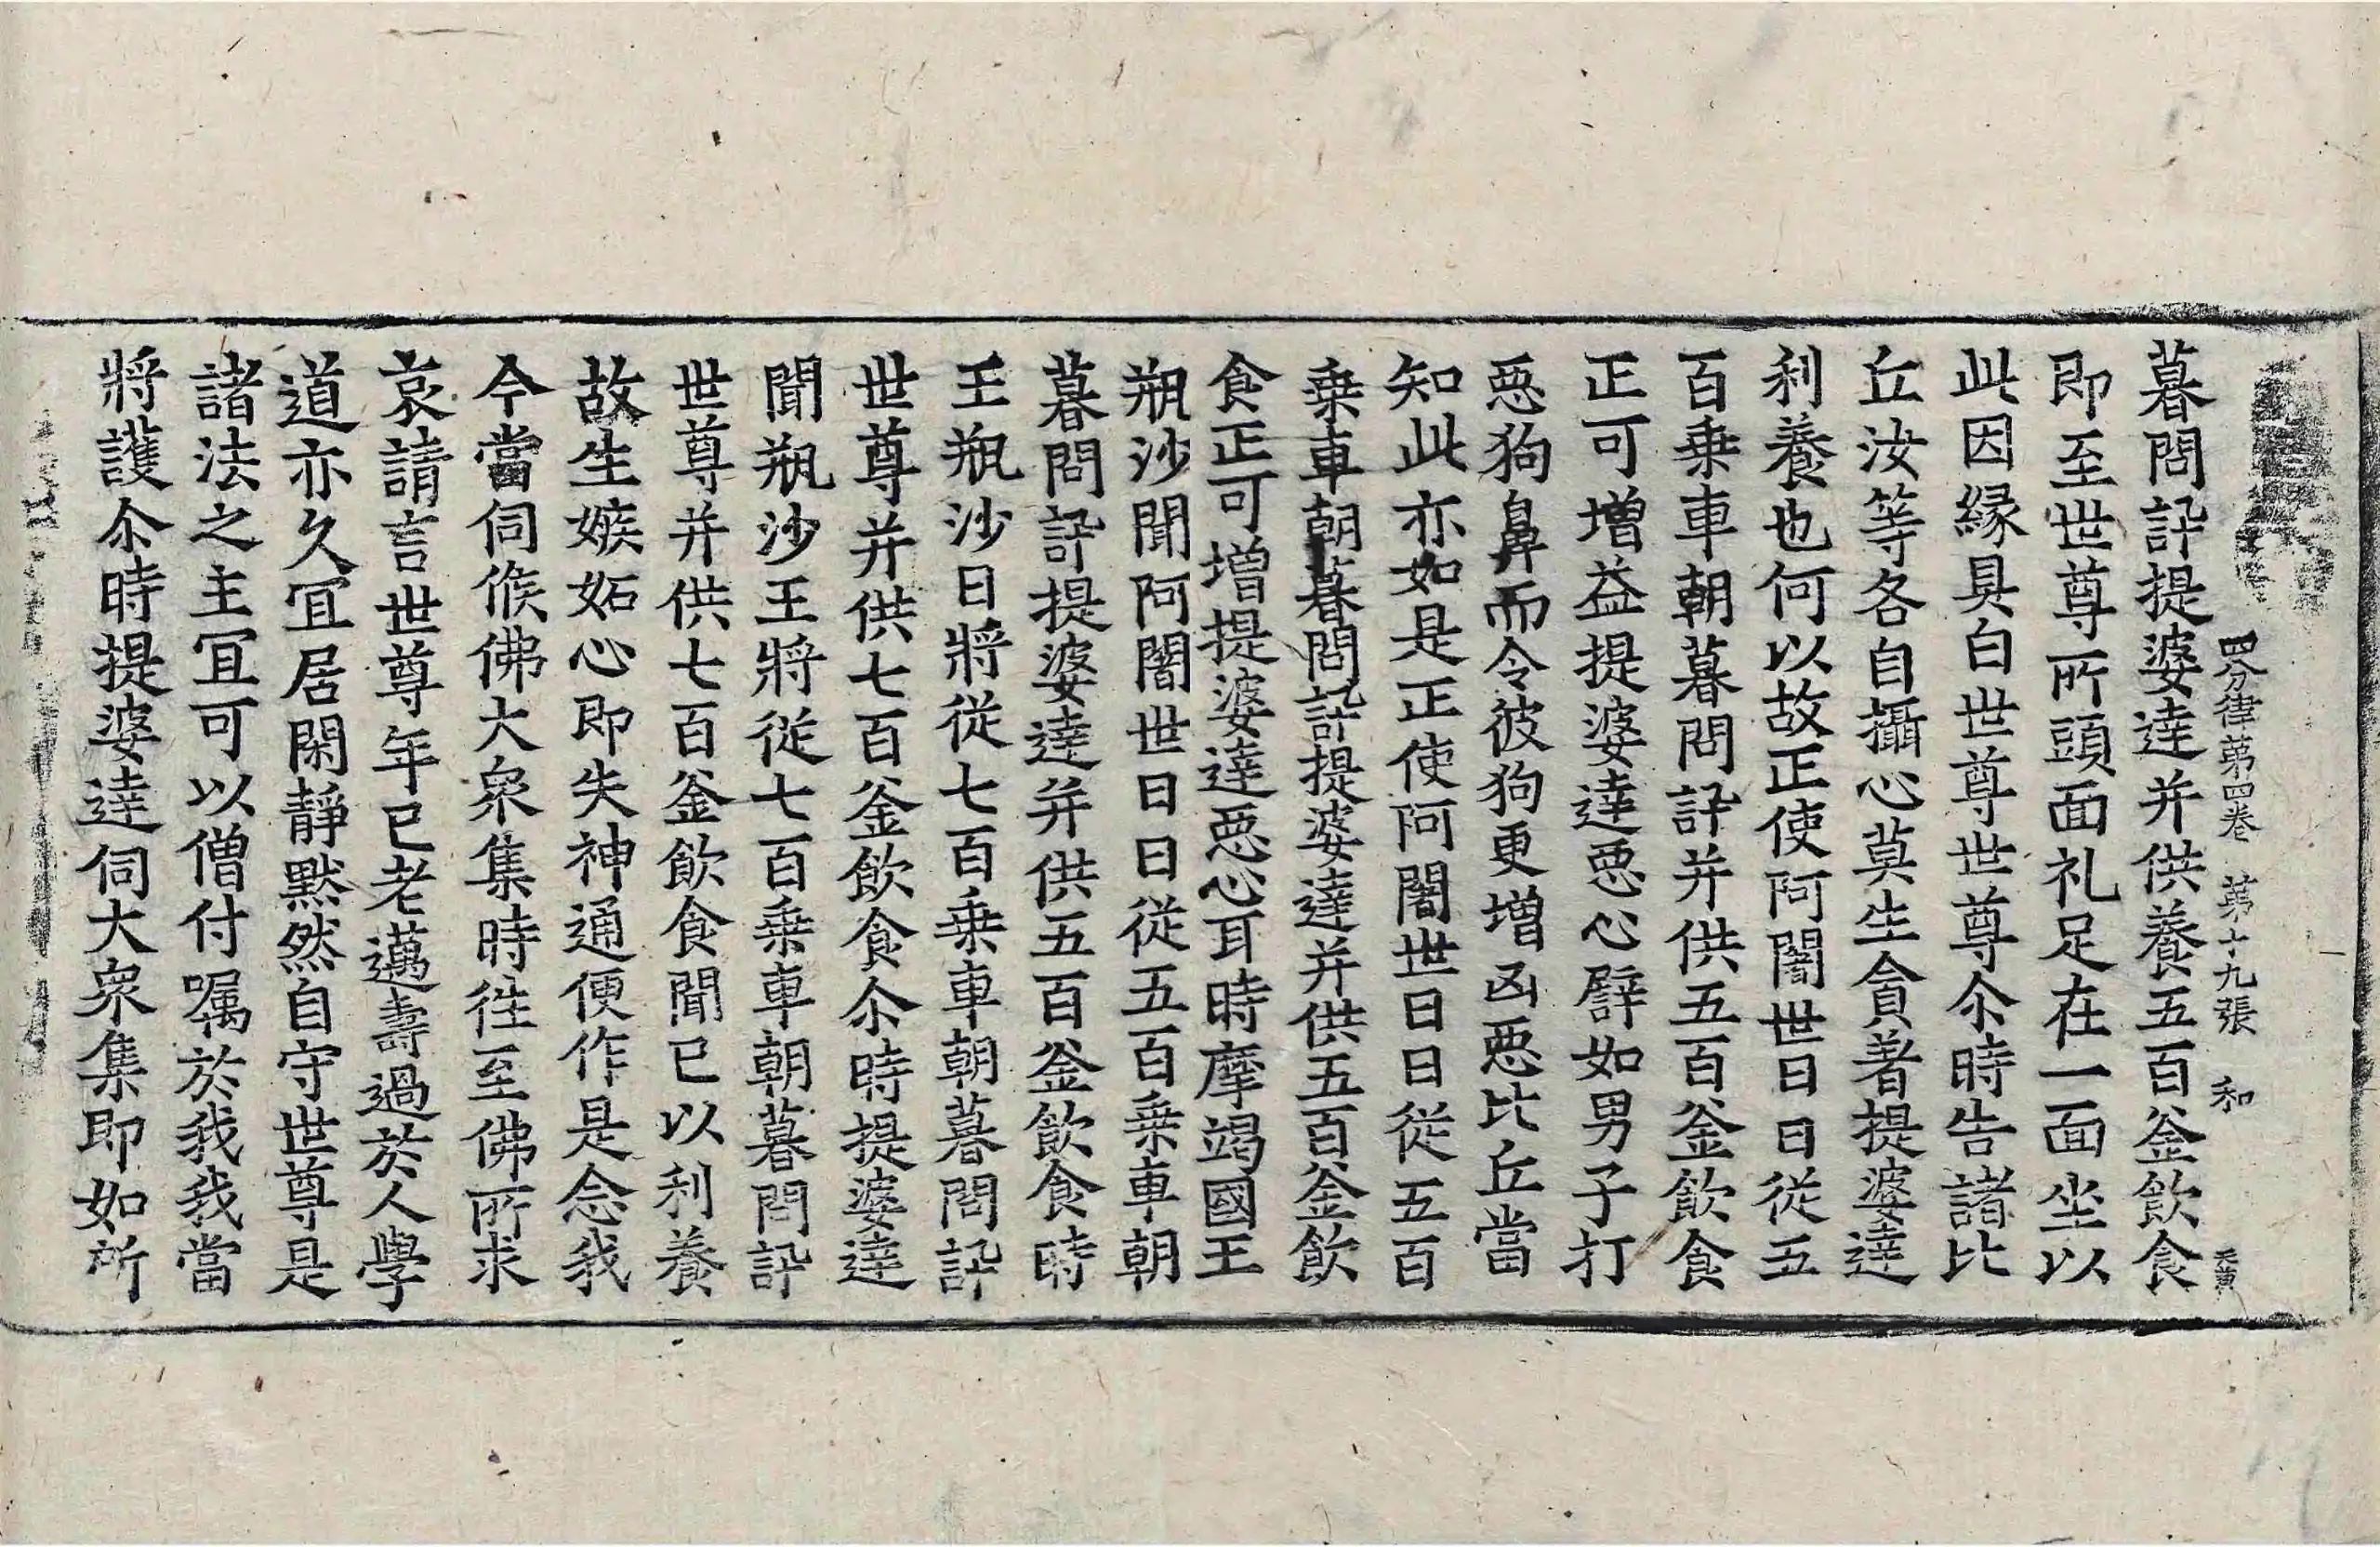 四分律第四卷　第十九張　和
暮問訊提婆達并供養五百釜飲食
即至世尊所頭面礼足在一面坐以
此因縁具白世尊世尊尒時告諸比
丘汝等各自攝心莫生貪著提婆達
利養也何以故正使阿闍世日日從五
百乗車朝暮問訊并供五百釜飲食
正可增益提婆達惡心譬如男子打
惡狗鼻而令彼狗更增凶惡比丘當
知此亦如是正使阿闍世日日從五百
乗車朝暮問訊提婆達并供五百釜飲
食正可增提婆達惡心耳時摩竭國王
瓶沙聞阿闍世日日從五百乗車朝
暮問訊提婆達并供五百釜飲食時
王瓶沙日將從七百乗車朝暮問訊
世尊并供七百釜飲食尒時提婆達
聞瓶沙王將從七百乗車朝暮問訊
世尊并供七百釜飲食聞已以利養
故生嫉妬心即失神通便作是念我
今當伺候佛大衆集時徃至佛所求
哀請言世尊年已老邁壽過於人學
道亦久冝居閑靜默然自守世尊是
諸法之主冝可以僧付嘱於我我當
將護尒時提婆達伺大衆集即如所